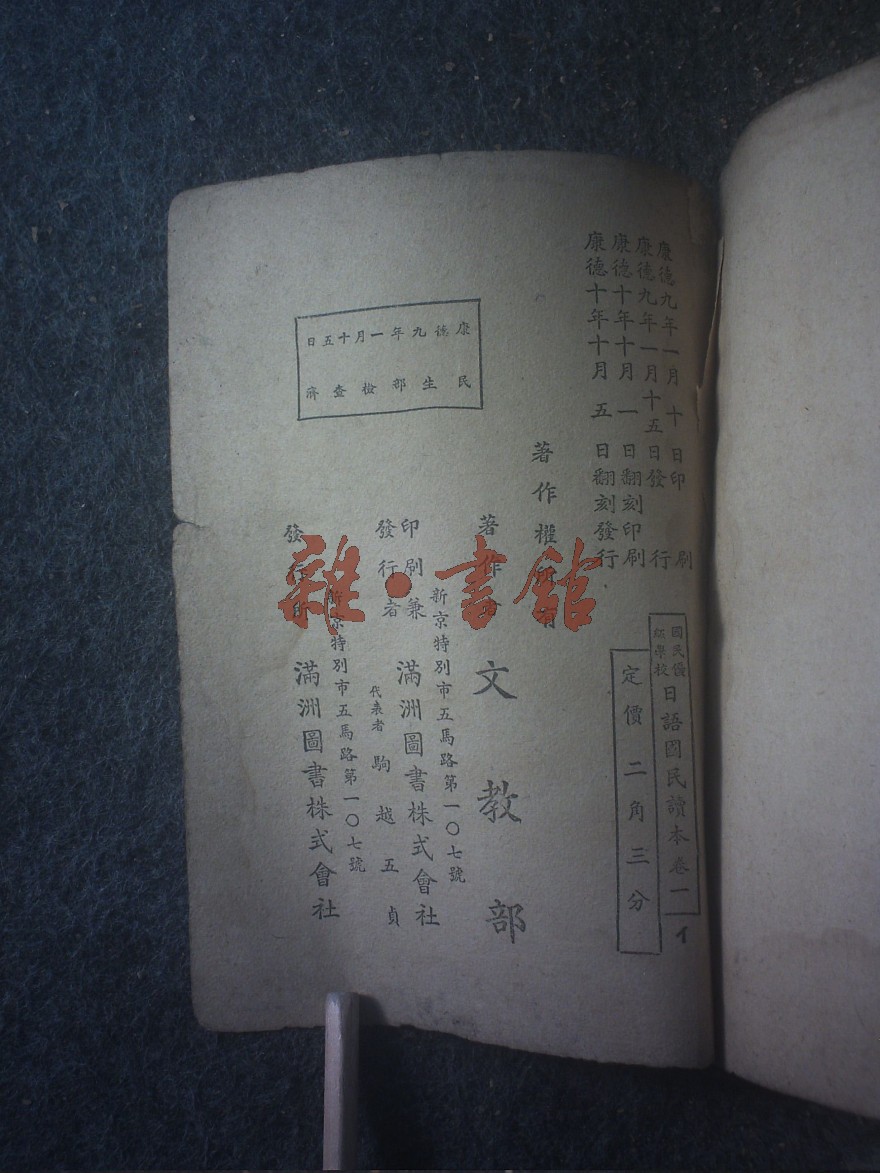 康德九年一月十日印刷
康德九年一月十五日發行
康德十年十月一日翻刻印刷
康德十年十月五日翻刻發行
國民優級學校
日語國民讀本卷一
イ
定價二角三分
著作權所有
著作者
文教部
新京特別市五馬路第一〇七號
印刷兼發行者
滿洲圖書株式會社
代表者 駒越五貞
新京特別市五馬路第一〇七號
發行所
滿洲圖書株式會社
康德九年一月十五日
民生部檢查濟
雜·書館